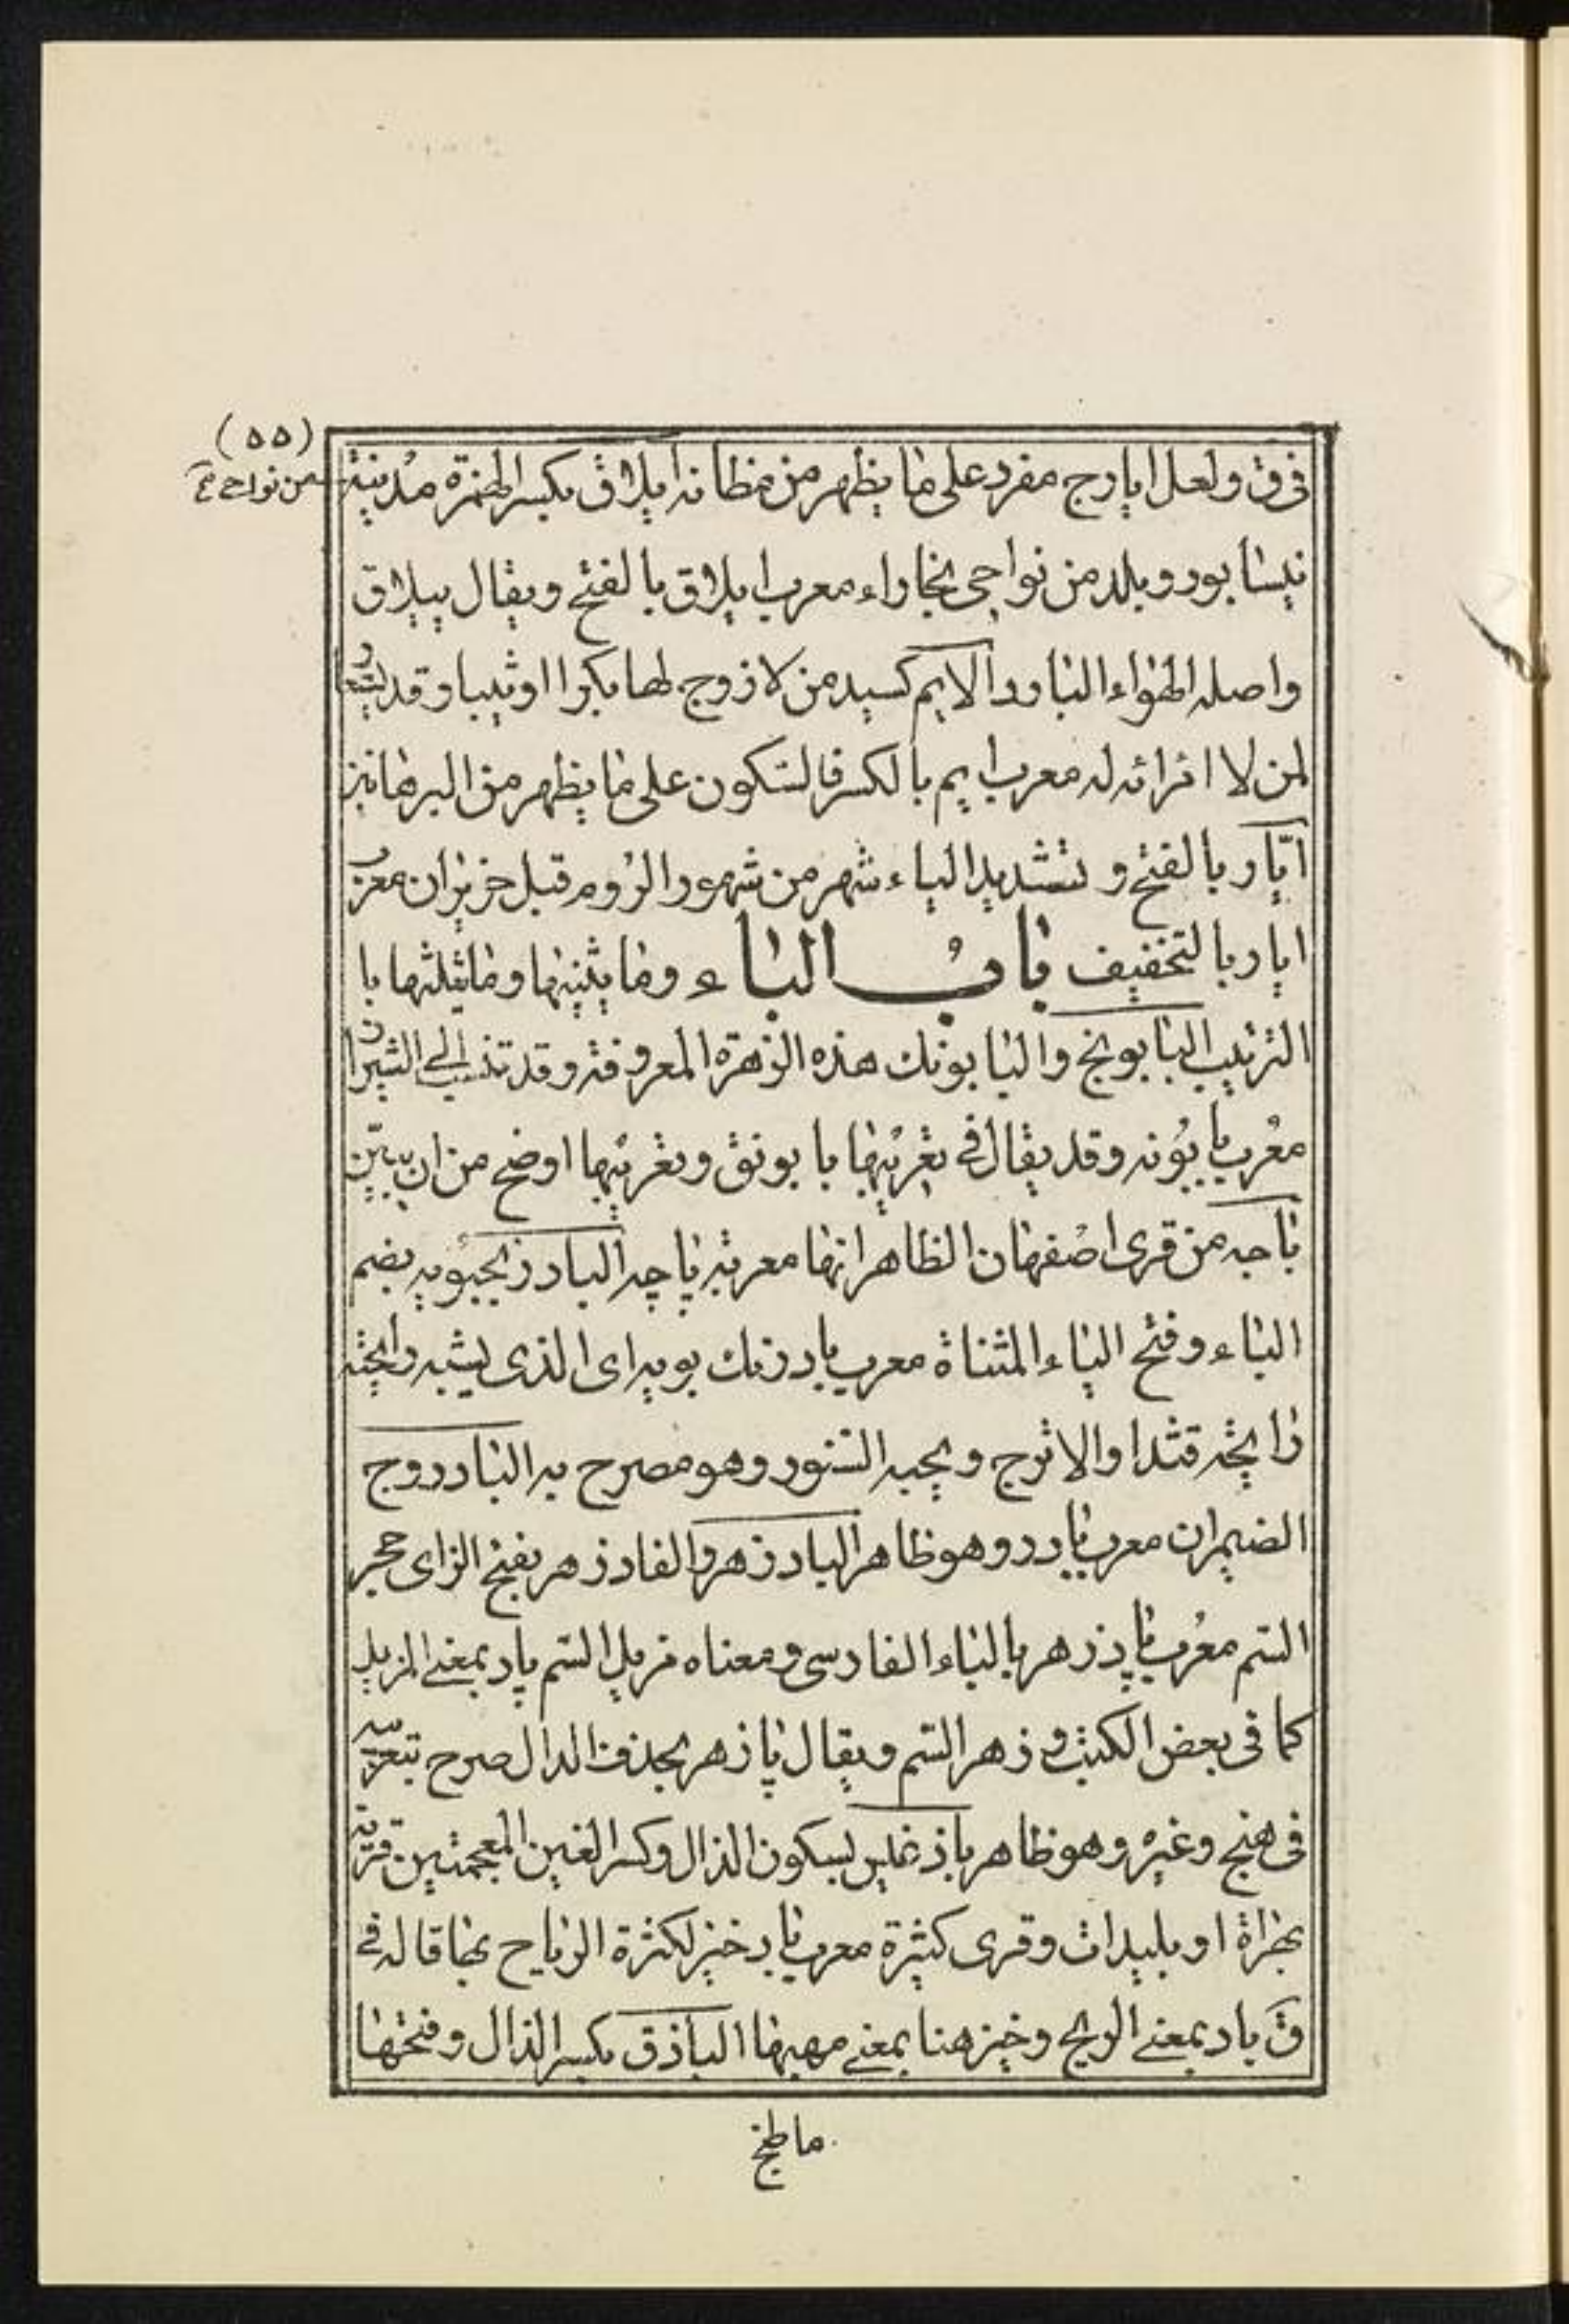 (٥٥)
من نواحى
فى ق ولعل ايارج مفرد على ما يظهر من مظانه ايلاق بكسر الهمزة مدينة
نيسابور وبلد من نواحى بخاراء معرب ايلاق بالفتح ويقال ييلاق
واصله الهواء البارد الايم كسيد من لا زوج لها بكرا او ثيبا وقد
لمن لا امرائه له معرب ايم بالكسر فالسكون على ما يظهر من البرهان
ايّار بالفتح وتشديد الياء شهر من شهور الروم قبل حزيران معرب
ايار بالتخفيف باب الباء وما يثنيها وما يثلثها با
الترتيب البابونج والبابونك هذه الزهرة المعروفة وقد تنسب الى
معرب بابونه وقد يقال فى تعريبها بابونق وتعريبها اوضح من ان يبيّن
باجه من قرى اصفهان الظاهر انها معربة پاچه البادرنجبويه بضم
الباء وفتح الياء المثناة معرب بادرنك بويه اى الذى يشبه رايحته
رايحة قثدا والاترج ويحبه السنور وهو مصرح به البادروج
الضيمران معرب بادرو وهو ظاهر البادزهر والفادزهر بفتح الزاى حجر
السم معرب پادزهر بالباء الفارسى ومعناه مزيل السم پاد بمعنى المزيل
كما فى بعض الكتب و زهر السم ويقال پازهر بحذف الدال صرح بتعريبه
فى هنج وغيره وهو ظاهر باذغيس بسكون الذال وكسر الغين المعجمتين قرية
بهراة او بليدات وقرى كثيرة معرب بادخيز لكثرة الرياح بها قاله فى
ق باد بمعنى الريح وخيز هنا بمعنى مهبها الباذق بكسر الذال وفتحها
ما طبخ